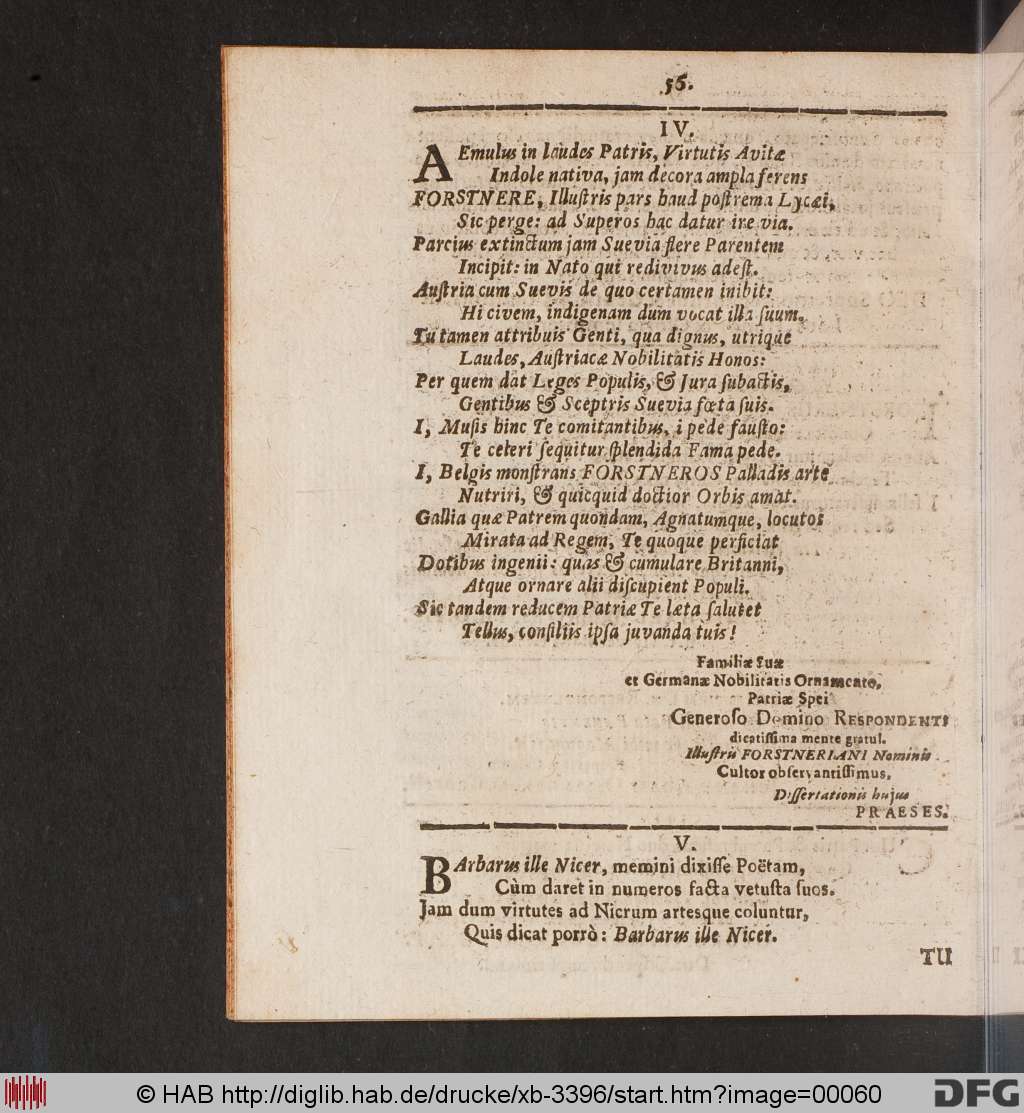 56.
IV.
AEmulus in laudes Patris, Virtutis Avitæ
Indole nativa, jam decora ampla ferens
FORSTNERE, Illuſtris pars haud poſtrema Lycæi,
Sic perge: ad Superos hac datur ire via.
Parcius extinctum jam Suevia flere Parentem
Incipit: in Nato qui redivivus adeſt.
Auſtria cum Suevis de quo certamen inibit:
Hi civem, indigenam dum vocat illa ſuum.
Tu tamen attribuis Genti, qua dignus, utrique
Laudes, Auſtriacæ Nobilitatis Honos:
Per quem dat Leges Populis, & Jura ſubactis,
Gentibus & Sceptris Suevia fœta ſuis.
I, Muſis hinc Te comitantibus, i pede fauſto:
Te celeri ſequitur ſplendida Fama pede.
I, Belgis monſtrans FORSTNEROS Palladis arte
Nutriri, & quicquid doctior Orbis amat.
Gallia quæ Patrem quondam, Agnatumque, locutos
Mirata ad Regem, Te quoque perficiat
Dotibus ingenii: quas & cumulare Britanni,
Atque ornare alii diſcupient Populi.
Sic tandem reducem Patriæ Te læta ſalutet
Tellus, conſiliis ipſa juvanda tuis!
Familiæ ſuæ
et Germanæ Nobilitatis Ornamento,
Patriæ Spei
Generoſo Domino RESPONDENTI
dicatiſſima mente gratul.
Illuſtris FORSTNERIANI Nominis
Cultor obſervantiſſimus,
Diſſertationis hujus
PRAESES.
V.
BArbarus ille Nicer, memini dixiſſe Poëtam,
Cùm daret in numeros facta vetuſta ſuos.
Jam dum virtutes ad Nicrum artesque coluntur,
Quis dicat porrò: Barbarus ille Nicer.
TU
© HAB http://diglib.hab.de/drucke/xb-3396/start.htm?image=00060
DFG